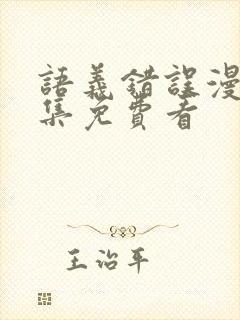 語義錯誤漫
集免費看
王治平